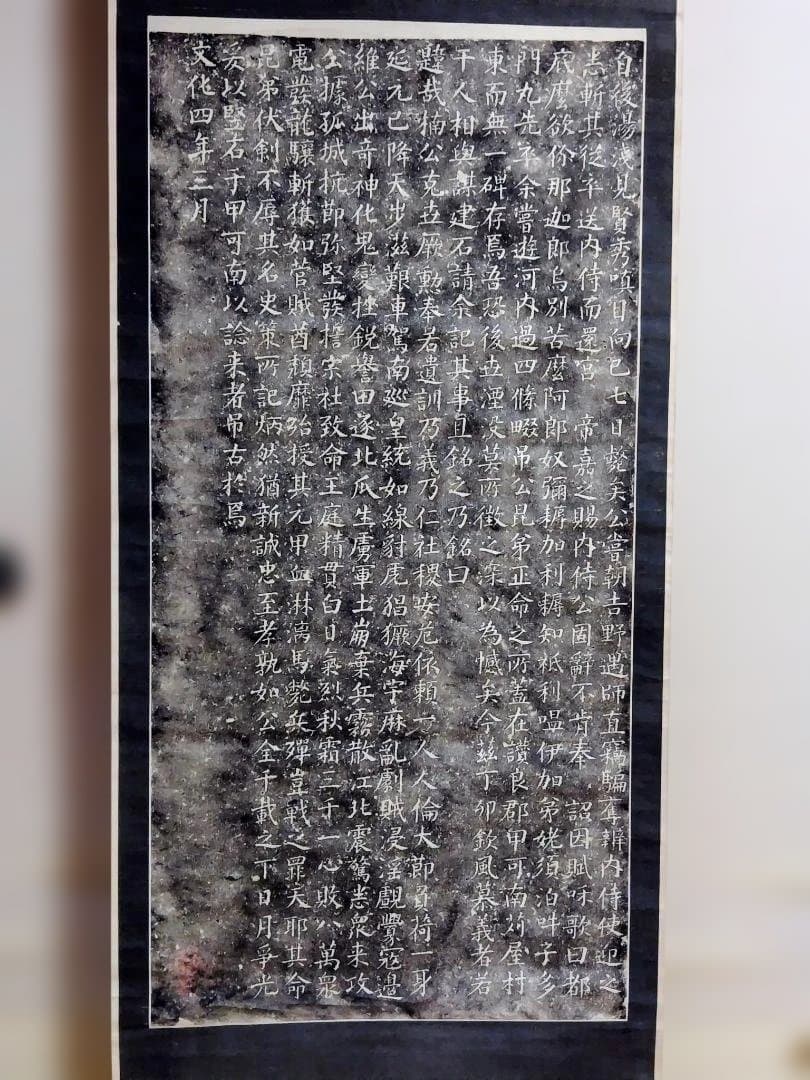 自後湯浅見賢秀嗔目向已七日斃矣公嘗朝吉野遇師直竊騙辨内侍使迎之
恚斬其従卒送内侍而還宮　帝嘉之賜内侍公固辭不肯奉　詔因賦咊歌曰都
底麼欲你那迦郎烏別苦麼阿郎奴彌耨加利耨知袛利嗢伊加第姥須泊吽子多
門丸先卒余嘗遊河内過四條畷吊公昆弟正命之所蓋在讃良郡甲可南苅屋村
東而無一碑存焉吾恐後世湮没莫所徴之深以為憾矣今玆丁卯欽風慕義者若
干人相與謀建石請余記其事且銘之乃銘曰
韙哉楠公克世厥勲奉若遺訓乃義乃仁社稷安危依頼一人人倫大節負荷一身
延元已降天歩滋艱車駕南巡皇統如線豺虎猖獗海宇麻亂劇賊浸淫覬釁寇邊
維公出奇神化鬼變挫鋭譽田逐北瓜生虜軍土崩棄兵霧散江北震驚恚衆来攻
公據孤城抗節弥堅發檐宗社致命王庭精貫白日氣烈秋霜三千一心敗八萬衆
電發龍驤斬獲如菅賊酋頽靡殆授其元甲血淋漓馬斃矢殫豈戰之罪天耶其命
昆弟伏剣不辱其名史策所記炳然猶新誠忠至孝孰如公全千載之下日月爭光
爰以竪石于甲可南以諗来者吊古於焉
文化四年三月